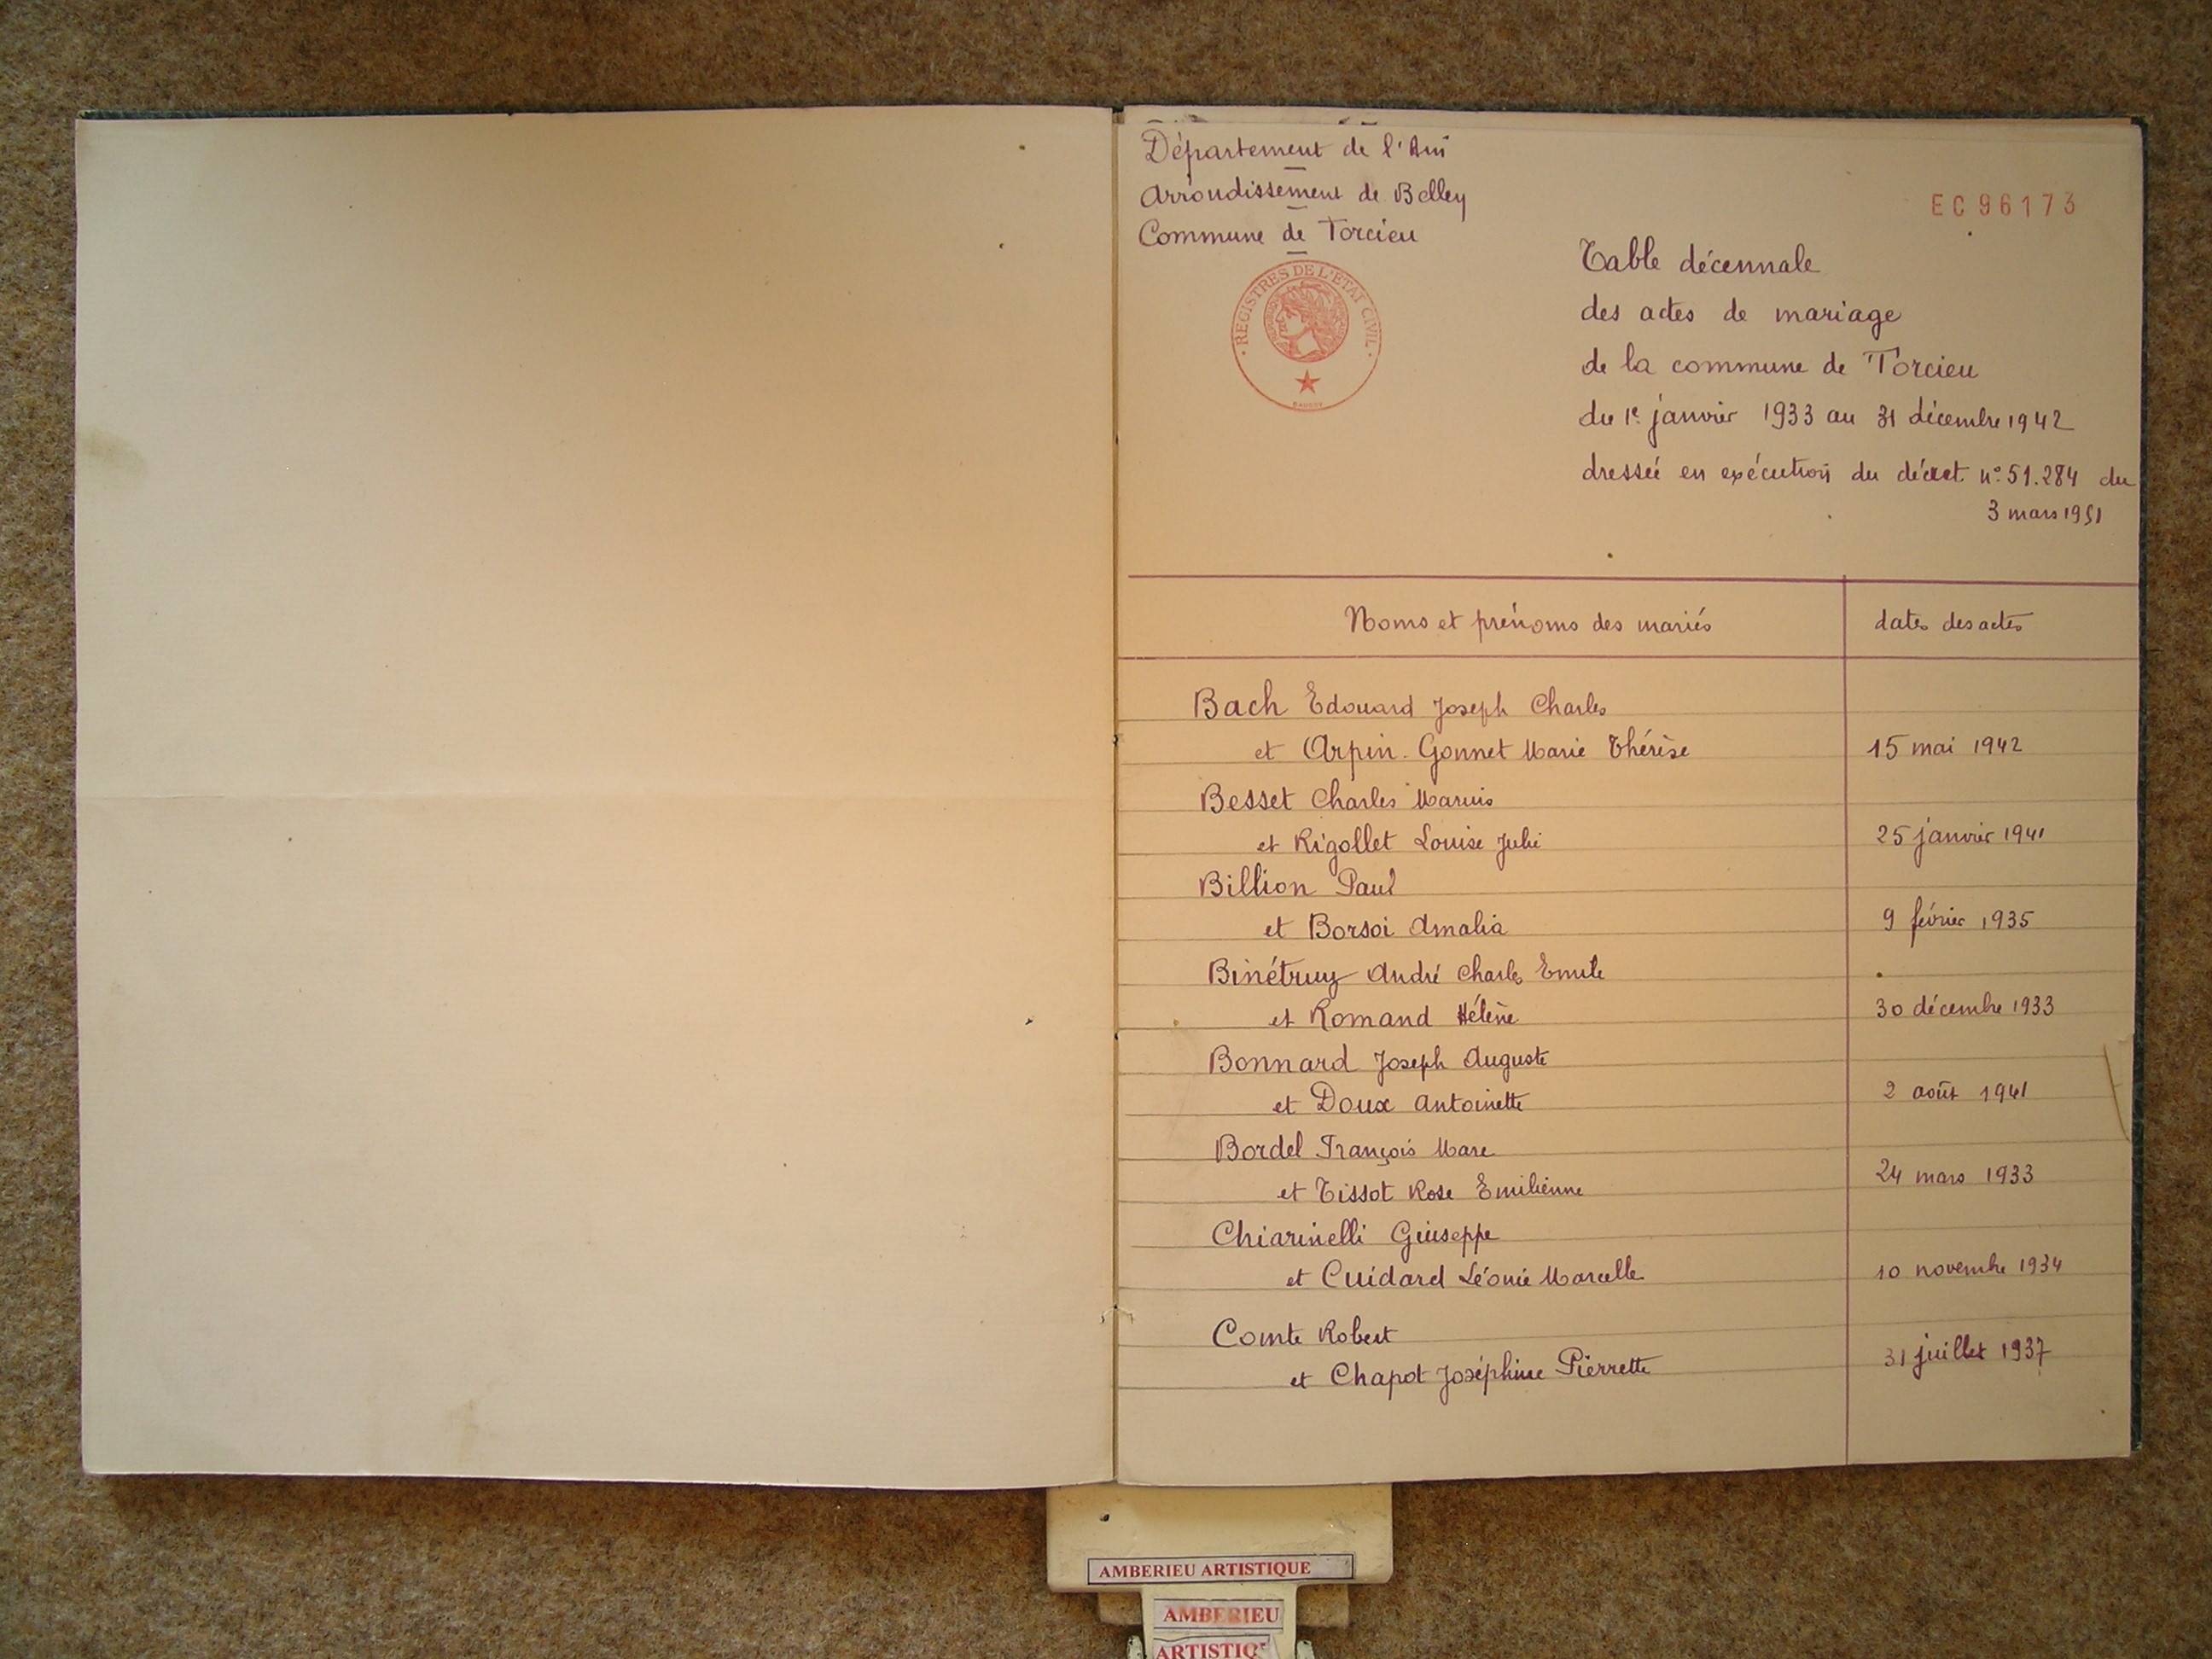 Département de l'Ain
Arrondissement de Belley
Commune de Torcieu
· REGISTRES DE L'ETAT CIVIL ·
EC 96173
Table décennale
des actes de mariage
de la commune de Torcieu
du 1er janvier 1933 au 31 décembre 1942
dressée en exécution du décret n° 51.284 du
3 mars 1951
Noms et prénoms des mariés dates des actes
Bach Edouard Joseph Charles
et Arpin-Gonnet Marie Thérèse 15 mai 1942
Besset Charles Marius
et Rigollet Louise Julie 25 janvier 1941
Billion Paul
et Borsoi Amalia 9 février 1935
Binétruy André Charles Emile
et Romand Hélène 30 décembre 1933
Bonnard Joseph Auguste
et Doux Antoinette 2 août 1941
Bordel François Marc
et Tissot Rose Emilienne 24 mars 1933
Chiarinelli Giuseppe
et Cuidard Léonie Marcelle 10 novembre 1934
Comte Robert
et Chapot Joséphine Pierrette 31 juillet 1937
AMBERIEU ARTISTIQUE
AMBERIEU